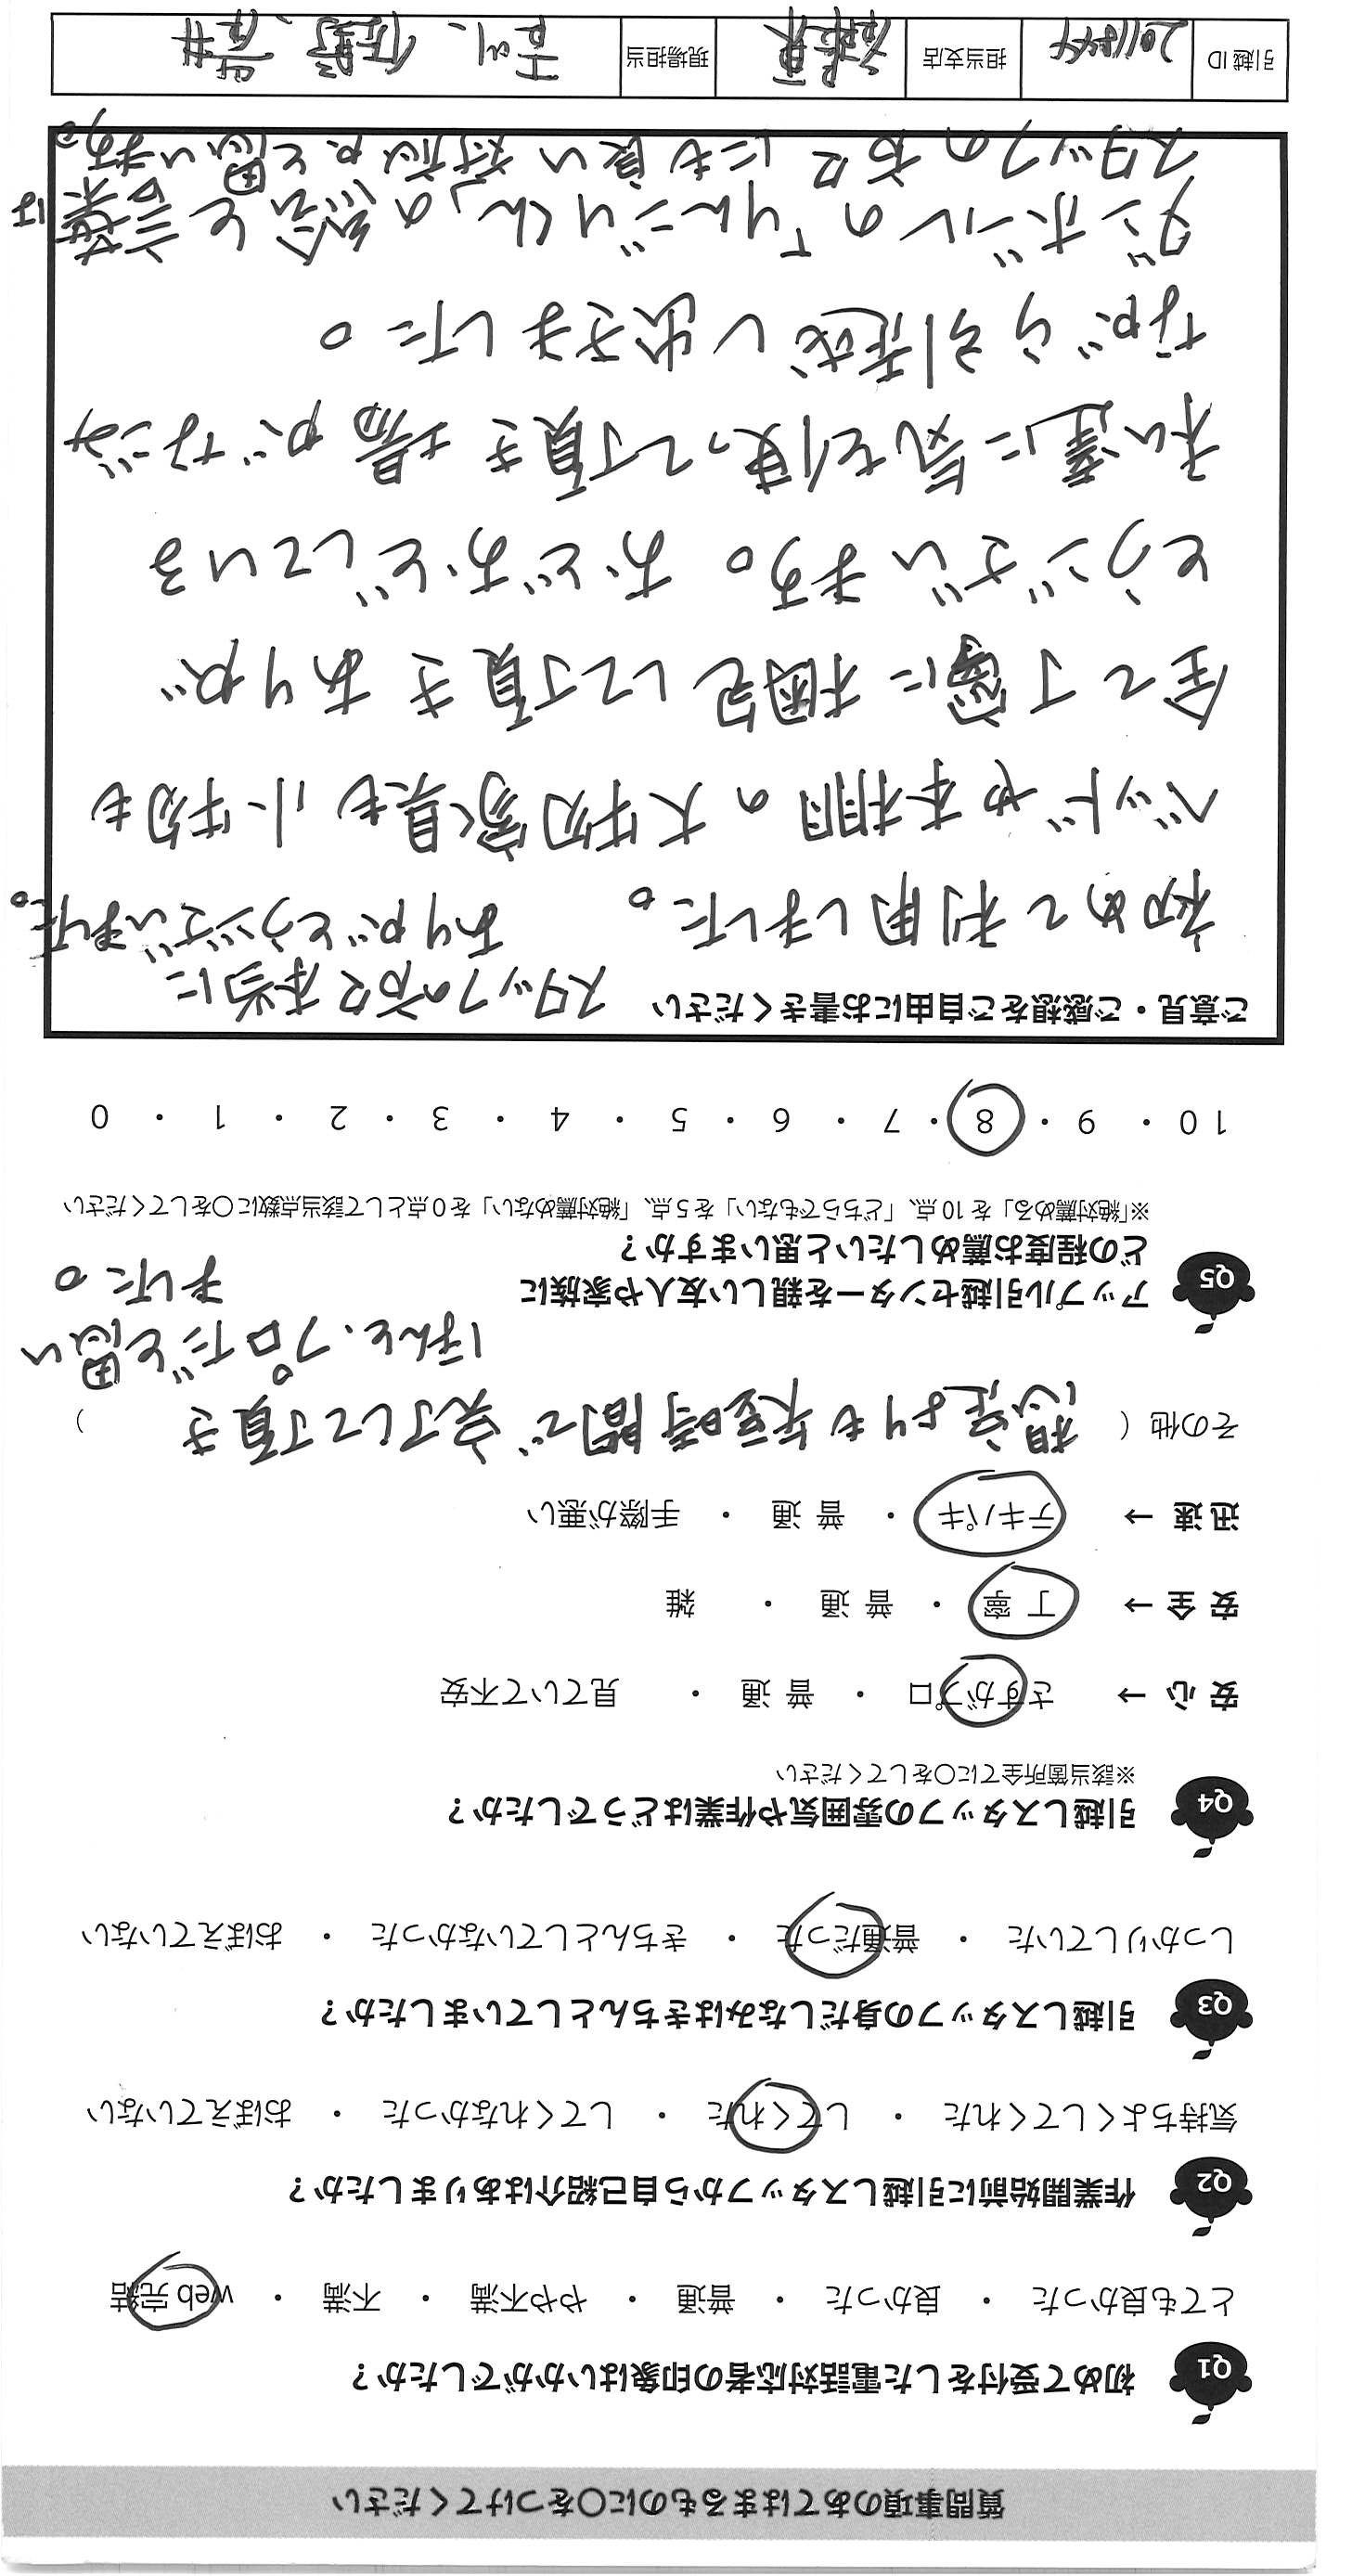 質問事項のあてはまるものに○をつけてください
Q1 初めて受付をした電話対応者の印象はいかがでしたか？
とても良かった ・ 良かった ・ 普通 ・ やや不満 ・ 不満 ・ web 完結
Q2 作業開始前に引越しスタッフから自己紹介はありましたか？
気持ちよくしてくれた ・ してくれた ・ してくれなかった ・ おぼえていない
Q3 引越しスタッフの身だしなみはきちんとしていましたか？
しっかりしていた ・ 普通だった ・ きちんとしていなかった ・ おぼえていない
Q4 引越しスタッフの雰囲気や作業はどうでしたか？
※該当箇所全てに○をしてください
安心 → さすがプロ ・ 普通 ・ 見ていて不安
安全 → 丁寧 ・ 普通 ・ 雑
迅速 → テキパキ ・ 普通 ・ 手際が悪い
その他（ 想定よりも短時間で完了して頂き ）
ほんと、プロだと思い
ました。
Q5 アップル引越センターを親しい友人や家族に
どの程度お薦めしたいと思いますか？
※「絶対薦める」を 10 点、「どちらでもない」を 5 点、「絶対薦めない」を 0 点として該当点数に○をしてください
10 ・ 9 ・ 8 ・ 7 ・ 6 ・ 5 ・ 4 ・ 3 ・ 2 ・ 1 ・ 0
ご意見・ご感想をご自由にお書きください
スタッフの方々本当に
ありがとうございました。
初めて利用しました。
ベッドや本棚の大物家具も小物も
全て丁寧に梱包して頂き ありが
とうございます。おどおどしている
私達に気を使って頂き場がなごみ
ながら引越し出来ました。
ダンボールの「りんごりくん」の絵と言葉は
スタッフの方々にも良い対応かと思います。
引越 ID
担当支店
現場担当 吉川、佐野、